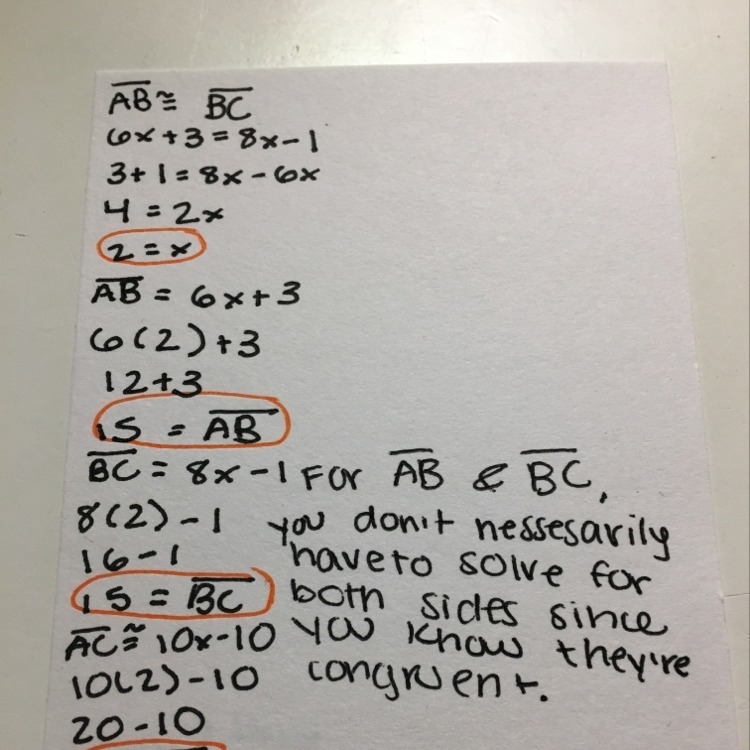 AB ≅ BC
6x+3=8x-1
3+1=8x-6x
4=2x
2=x
AB = 6x+3
6(2)+3
12+3
15 = AB
BC = 8x-1
8(2)-1
16-1
15 = BC
AC ≅ 10x-10
10(2)-10
20-10
For AB & BC,
you don't nessesarily
have to solve for
both sides since
you know they're
congruent.